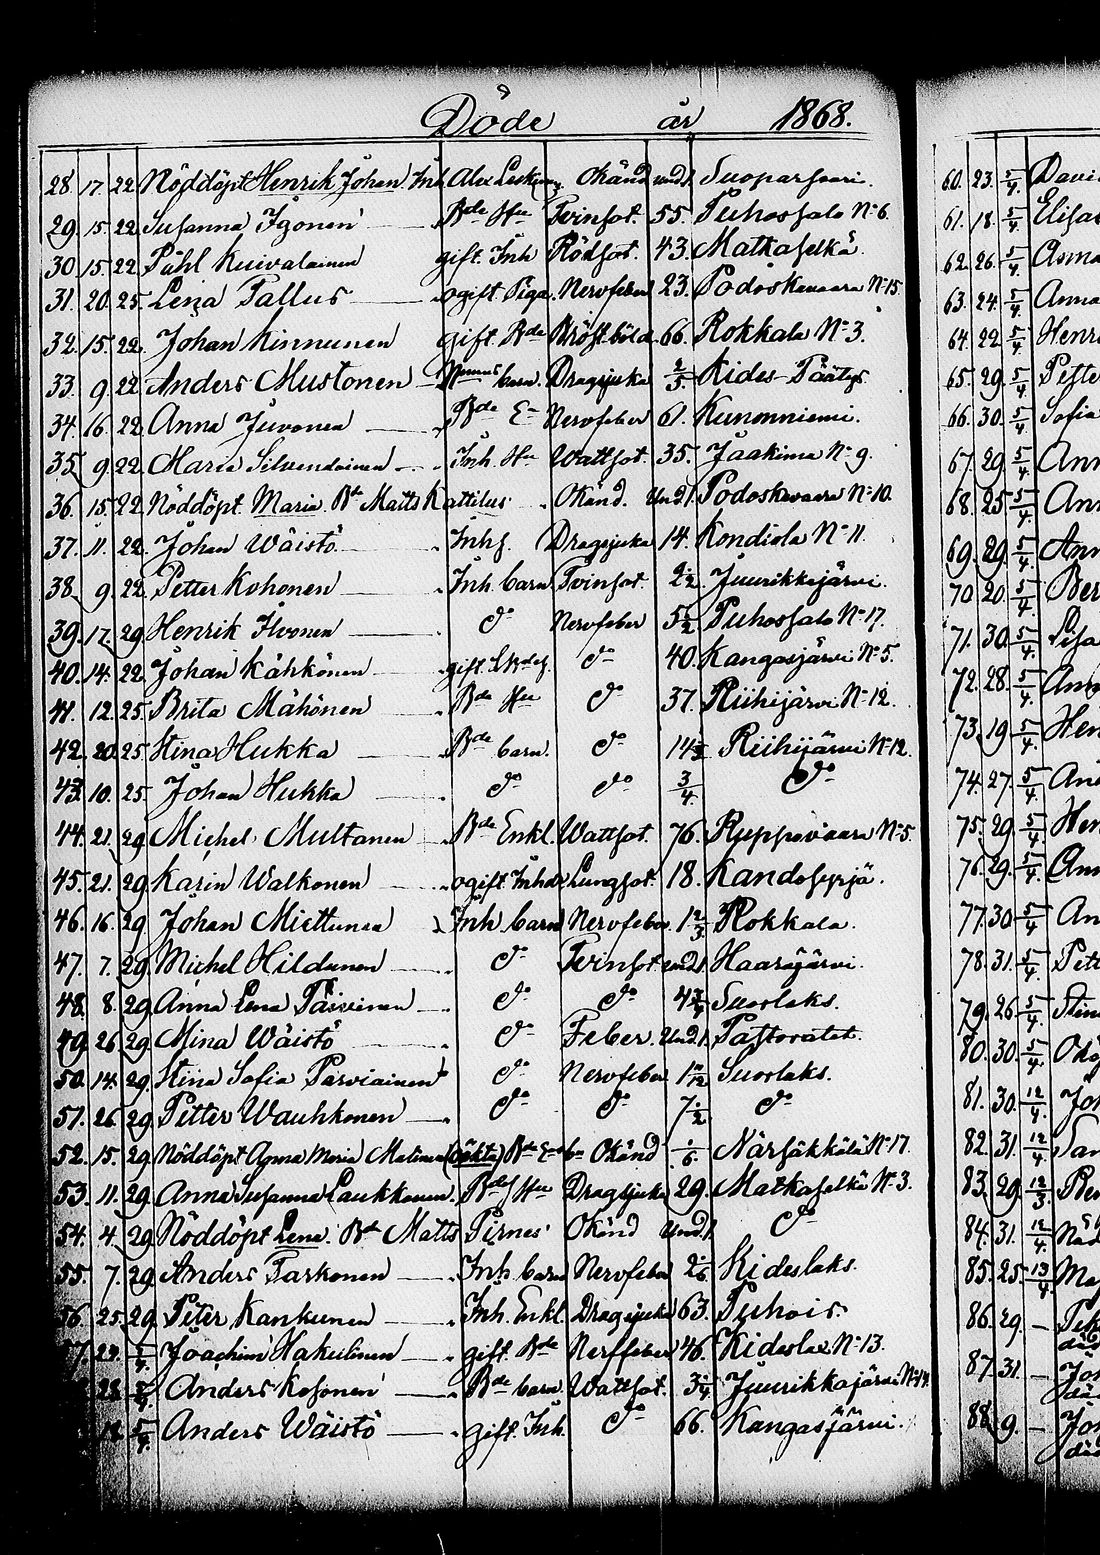 Döde år 1868.
28. 17. 22. Nöddöpt Henrik Johan Inh Alex Okänd und. 1. Suoparsaari.
29. 15. 22. Susanna Igonen Bde Hu Tvinsot. 55. Puhossalo No 6.
30 15. 22. Påhl Kuivalainen gift. Inh Rödsot. 43. Matkaselkä
31. 20. 25. Lena Tallus ogift. Piga. Nervfeber 23. Podoskavaara No 15
32. 15. 22. Johan Kinnunen gift. Bde Bröstböld 66. Rokkala No 3.
33. 9. 22. Anders Mustonen barn. Dragsjuka 2/5. Kides
34. 16. 22. Anna Juvonen Bde E Nervfeber 61. Kunonniemi.
35. 9. 22. Maria Silvendoinen Inh. Hu Wattsot. 35. Jaakima No 9.
36. 15. 22. Nöddöpt Maria. Bd Matts Kattilus Okänd. Und. 1. Podoskavaara No 10.
37. 11. 22. Johan Wäistö Inhs. Dragsjuka 14. Kondiola No 11.
38. 9. 22. Petter Kohonen Inh. barn Tvinsot. 2 1/2. Juurikkajärvi.
39. 17. 29. Henrik Ikonen do Nervfeber 5 1/2 Puhossalo No 17.
40. 14. 22. Johan Kähkönen gift. do 40. Kangasjärvi No 5.
41. 12. 25. Brita Mähönen Bde Hu do 37. Riihijärvi No 12.
42. 20. 25. Stina Hukka Bde barn. do 14 Riihijärvi No 12.
43. 10. 25. Johan Hukka do do 3/4. do
44. 21. 29. Michel Multanen Bde Enkl. Wattsot. 76. Ruppovaara No 5.
45. 21. 29. Karin Walkonen ogift. Inhdr Lungsot. 18. Kandosyrjä.
46. 16. 29. Johan Miettunen Inh. barn Nervfeber 1 2/3 Rokkala.
47. 7. 29. Michel Hildunen do Tvinsot. und. 1. Haarajärvi.
48. 8. 29. Anna Lena Päivinen do do 4 Suorlaks.
49. 26. 29. Mina Wäistö do Feber. Und. 1. Pastoratet.
50. 14. 29. Stina Sofia Parviainen do Nervfeber 1 11/12 Suorlaks.
51. 26. 29. Petter Wauhkonen do do 7 1/2. do
52. 15. 29. Nöddöpt Agnes Maria (oäkta) Bde Okänd 1/6. Närsäkkälä No 17.
53. 11. 29. Anna Susanna Laukkanen. Bdes Hu Dragsjuka 29. Matkaselkä No 3.
54. 4. 29. Nöddöpt Lena. Bd Matts Pirnes Okänd Und. 1. do
55. 7. 29. Anders Tarkonen Inh. barn Nervfeber 2 Kideslaks.
56. 25. 29. Peter Kankunen Inh. Enkl. Dragsjuka 63. Puhois.
57. 5/4. Joachim Hakulinen gift. Bde Nervfeber 46. Kideslax No 13.
28. 5/4. Anders Kosonen Bde barn Wattsot. 3 1/4. Juurikkajärvi
18. 5/4. Anders Wäistö gift. Inh. do 66. Kangasjärvi.
60. 23. 5/4.
61. 18. 5/4. Elisa
62. 26. 5/4. Anna
63. 24. 5/4. Anna
64. 22. 5/4. Henr
65. 29. 5/4. Pette
66. 30. 5/4. Sofia
67. 29. 5/4. Ann
68. 25. 5/4. Ann
69. 29. 5/4. Ann
70. 20. 5/4. Ber
71. 30. 5/4. Lisa
72. 28. 5/4. Ann
73. 19. 5/4. Hen
74. 27. 5/4. And
75. 29. 5/4. Hen
76. 29. 5/4. Ann
77. 30. 5/4. An
78. 31. 5/4. Pett
79. 26. 5/4. Stin
80. 30. 5/4.
81. 30. 12/4. Jo
82. 31. 12/4.
83. 29. 12/3.
84. 31. 12/4. Nöd
85. 25. 13/4. Ma
86. 29. –
87. 31. – Jo
88. 9. – Jo